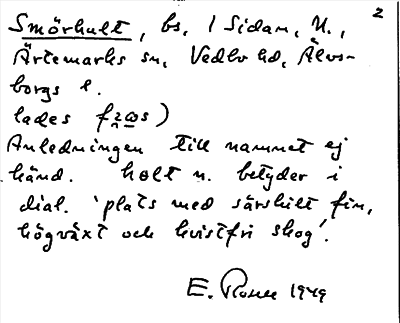 2
Smörhult, bs, / Sidan, N.,
Ärtemarks sn, Vedbo hd, Älvs-
borgs l.
lades
Anledningen till namnet ej
känd. holt n. betyder i
dial. 'plats med särskilt fin,
högväxt och kvistfri skog'.
E. Rosell 1949